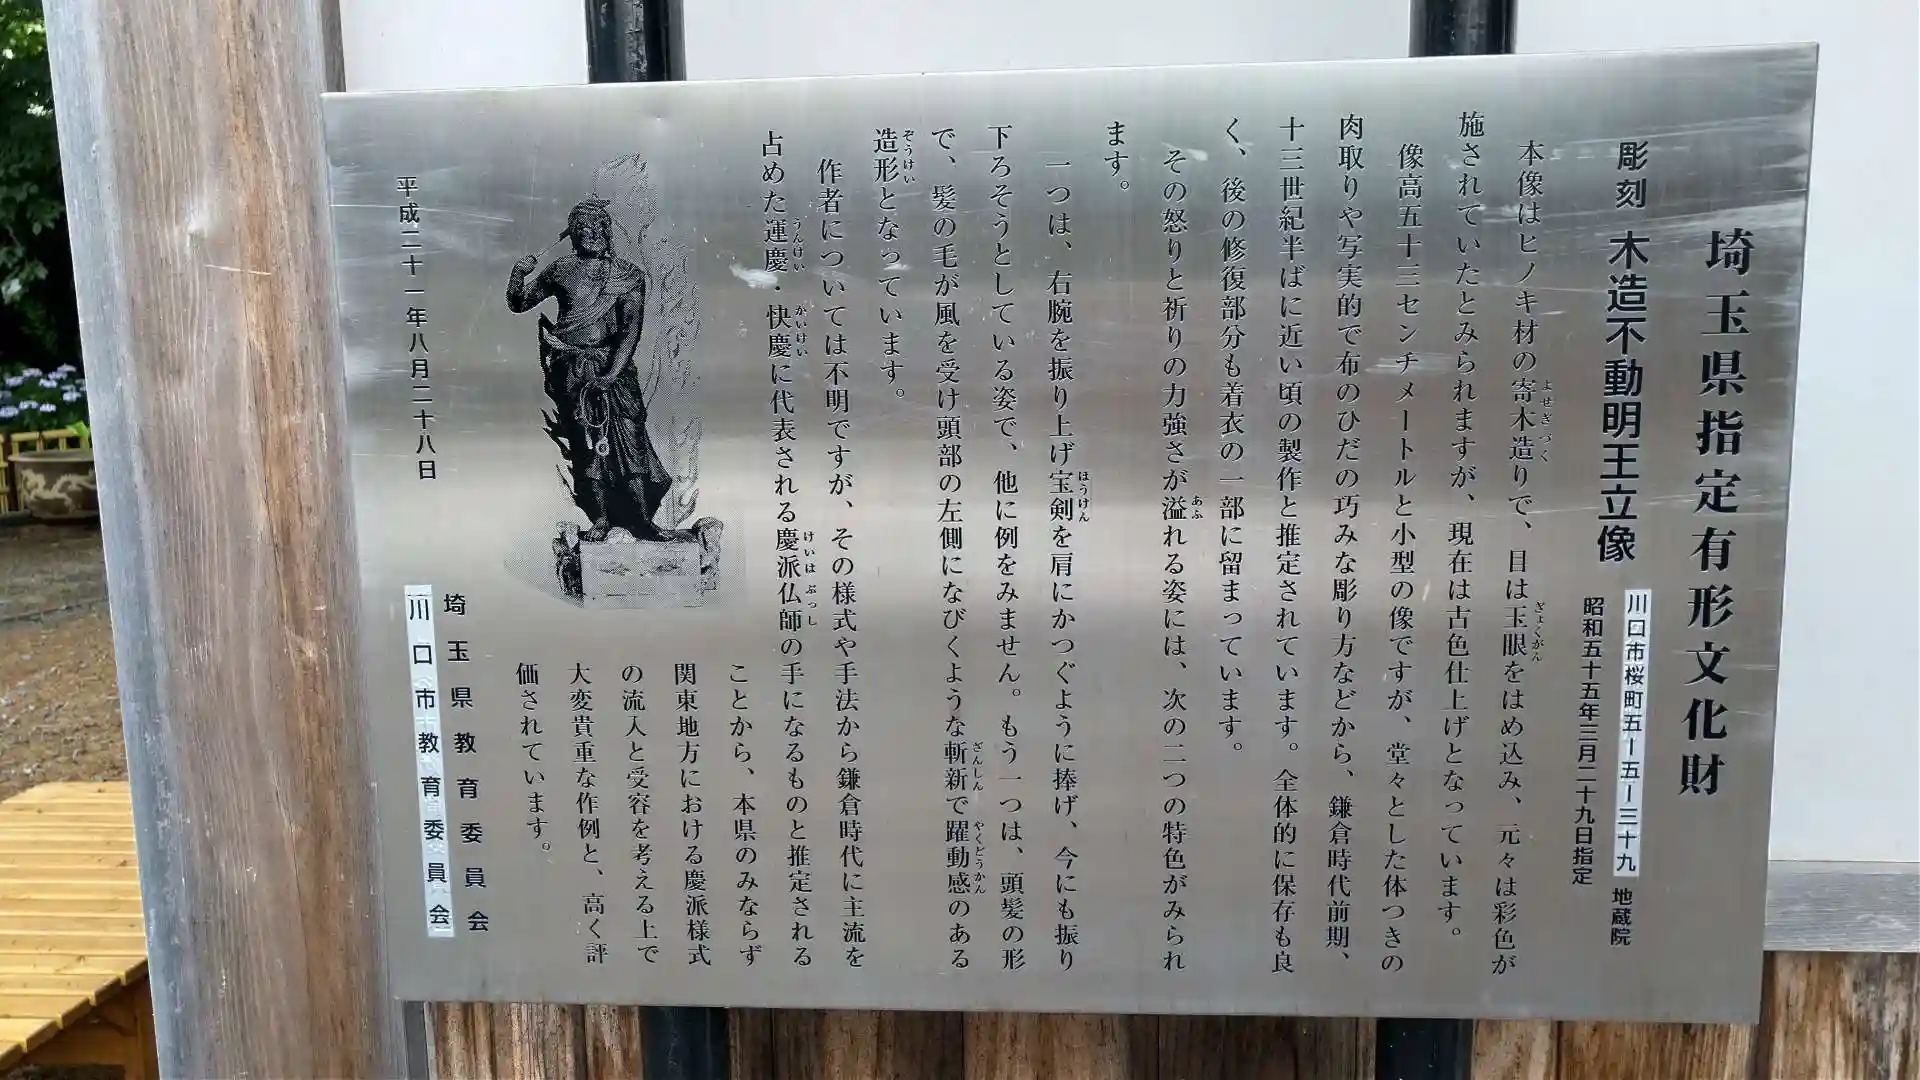 埼玉県指定有形文化財
彫刻 木造不動明王立像
川口市桜町五ー五ー三十九 地蔵院
昭和五十五年三月二十九日指定
本像はヒノキ材の寄木造りで、目は玉眼をはめ込み、元々は彩色が
よせぎづく
ぎょくがん
施されていたとみられますが、現在は古色仕上げとなっています。
像高五十三センチメートルと小型の像ですが、堂々とした体つきの
肉取りや写実的で布のひだの巧みな彫り方などから、鎌倉時代前期、
十三世紀半ばに近い頃の製作と推定されています。全体的に保存も良
く、後の修復部分も着衣の一部に留まっています。
その怒りと祈りの力強さが溢れる姿には、次の二つの特色がみられ
あふ
ます。
一つは、右腕を振り上げ宝剣を肩にかつぐように捧げ、今にも振り
ほうけん
下ろそうとしている姿で、他に例をみません。もう一つは、頭髪の形
で、髪の毛が風を受け頭部の左側になびくような斬新で躍動感のある
ざんしん
やくどうかん
造形となっています。
ぞうけい
作者については不明ですが、その様式や手法から鎌倉時代に主流を
占めた運慶・快慶に代表される慶派仏師の手になるものと推定される
うんけい
かいけい
けいはぶっし
ことから、本県のみならず
関東地方における慶派様式
の流入と受容を考える上で
大変貴重な作例と、高く評
価されています。
平成二十一年八月二十八日
埼玉県教育委員会
川口市教育委員会